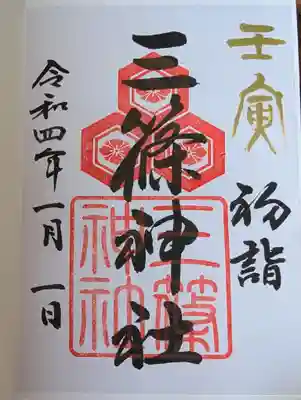 壬寅
初詣
三篠神社
三篠
神社
令和四年一月一日